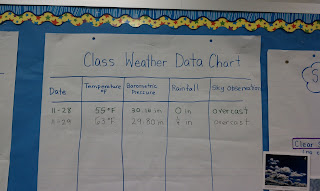 Class Weather Data Chart
Date Temperature °F Barometric Pressure Rainfall Sky Observation
11-28 55°F in 0 in overcast
11-29 63°F 29.80 in in overcast
Clear